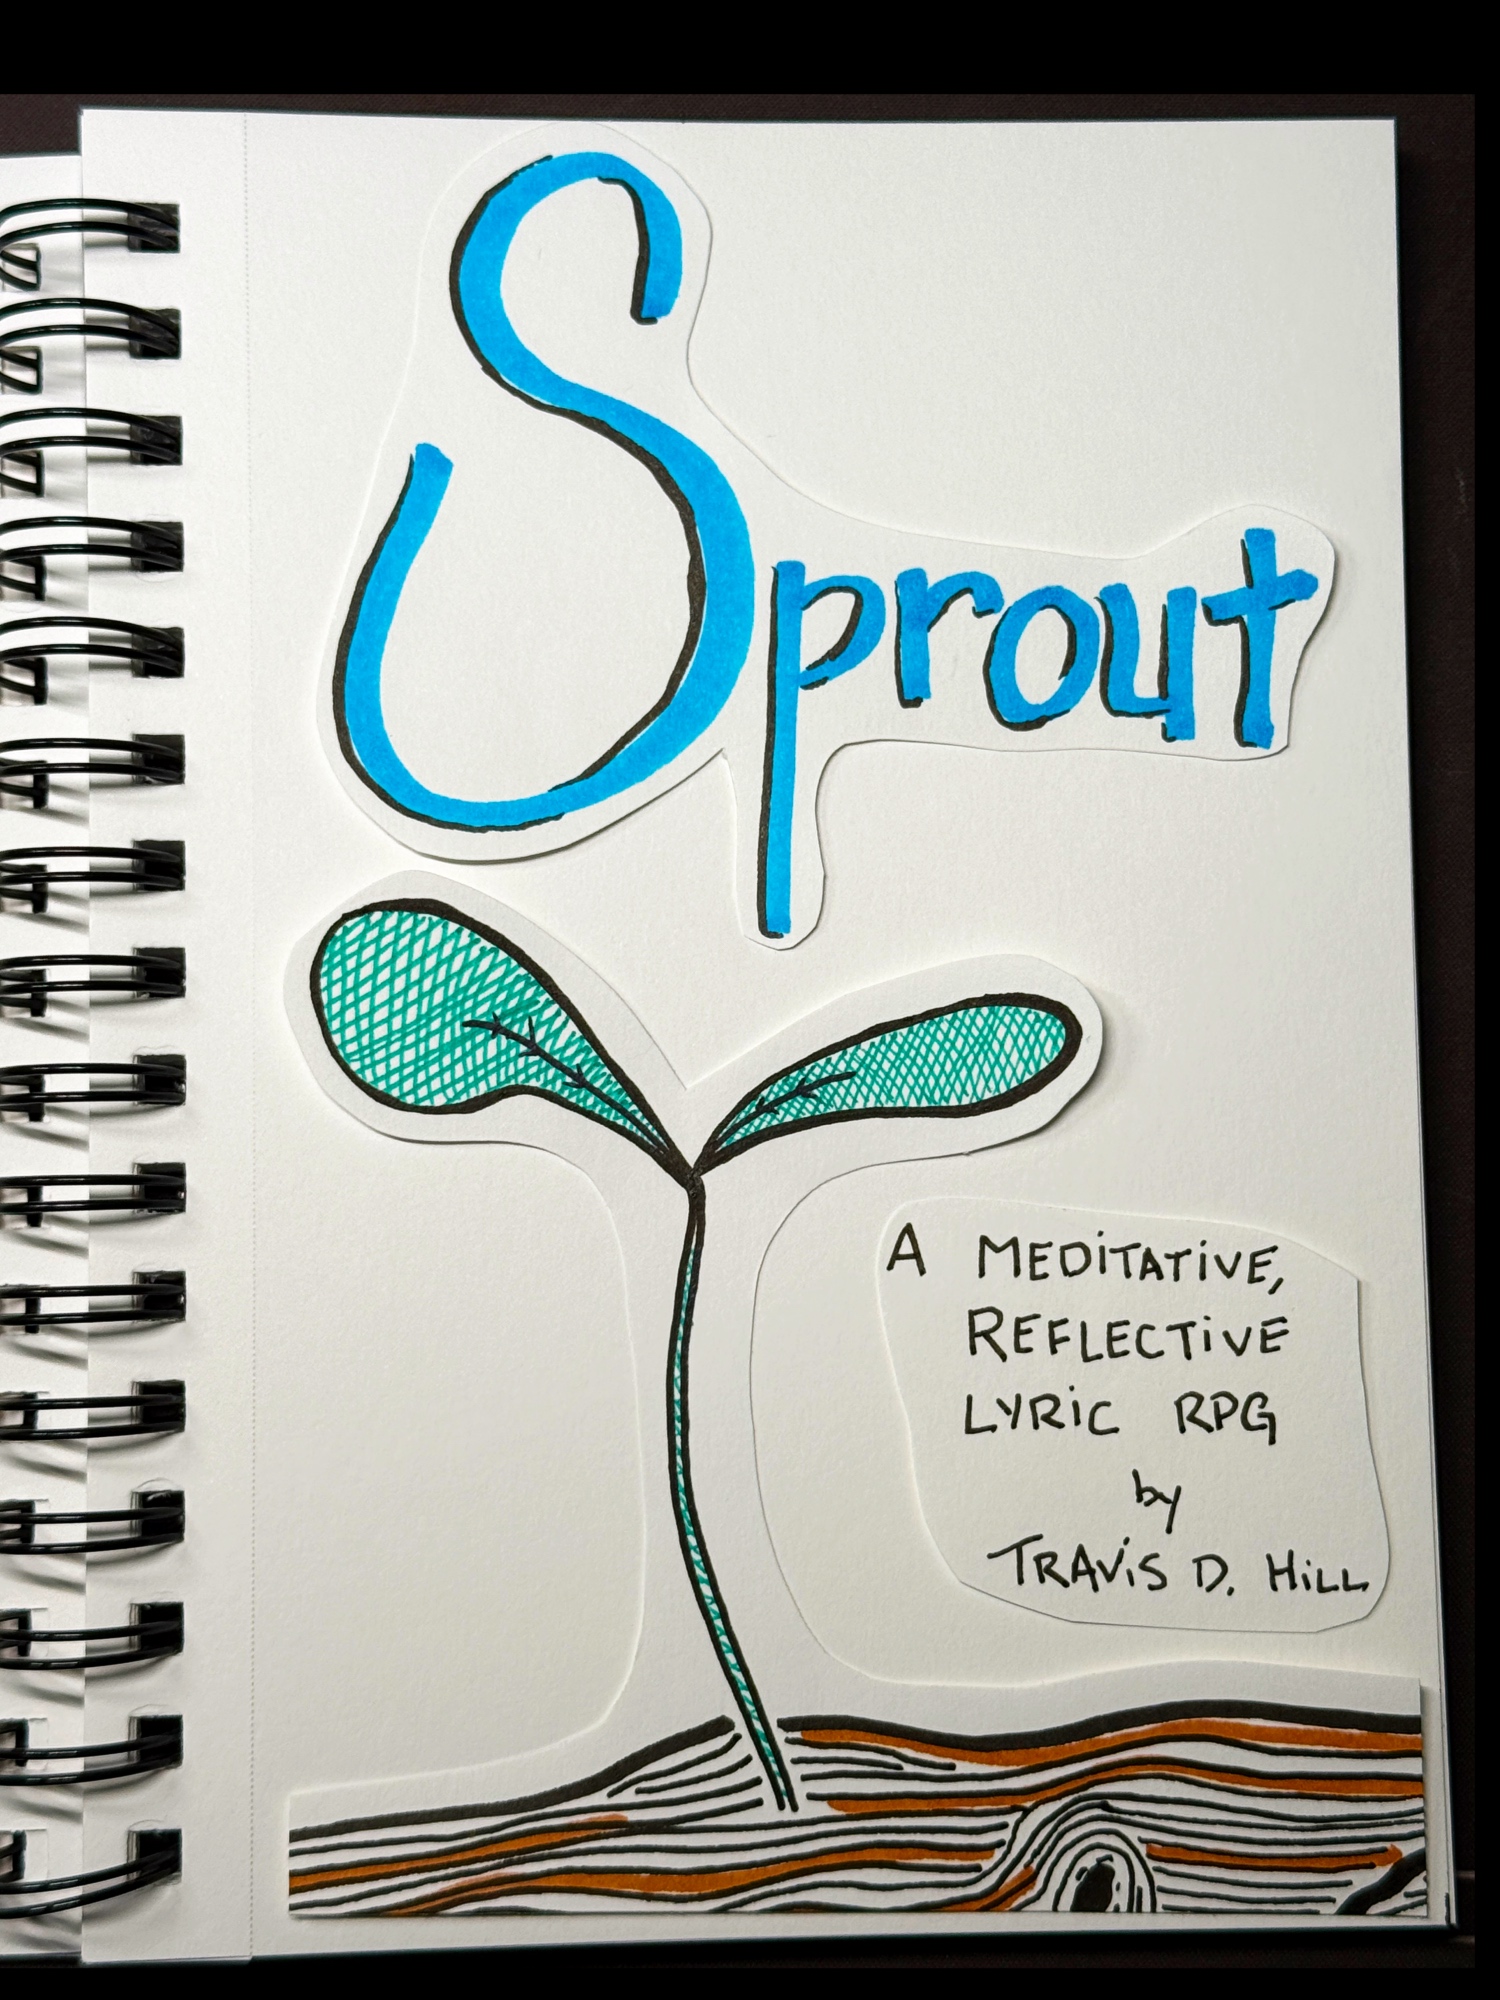 Sprout
A MEDiTATiVE,
REFLECTiVE
LYRiC RPG
by
TRAViS D. HiLL